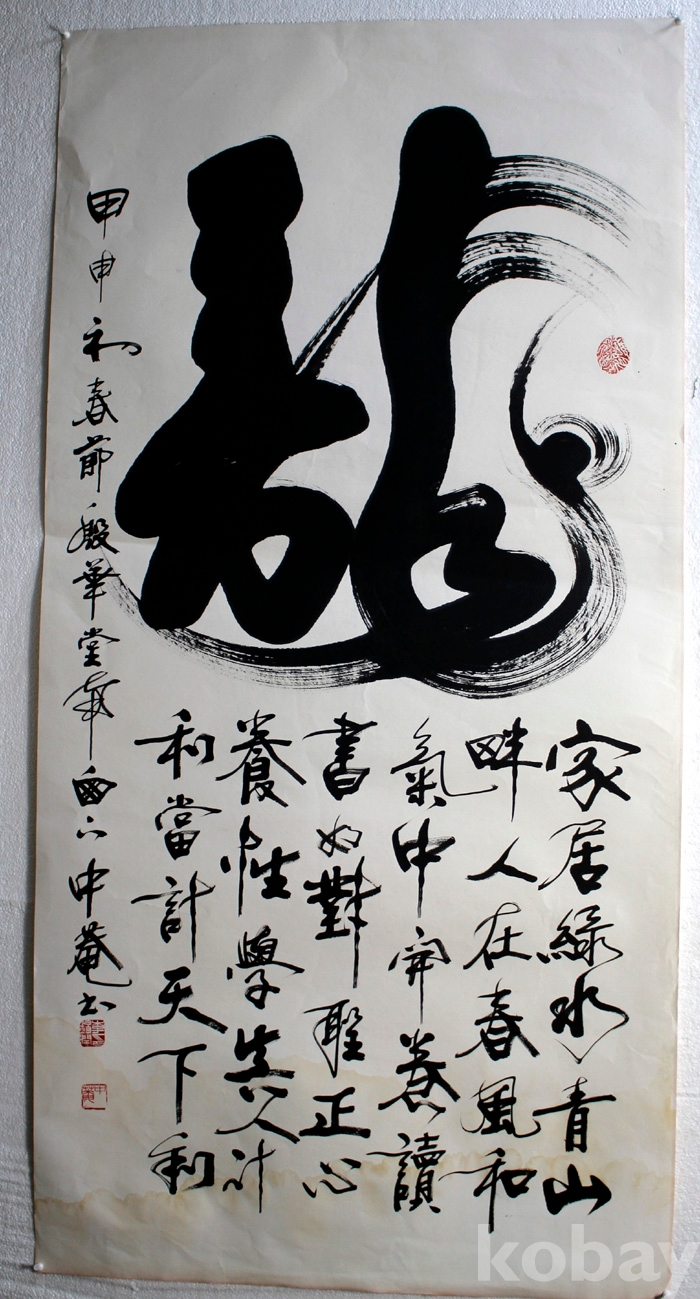 龍
家居綠水青山
畔人在春風和
氣中開卷讀
書如對聖正心
養性學眞人計
利當計天下利
甲申初春節殷華堂 中菴书
kobay